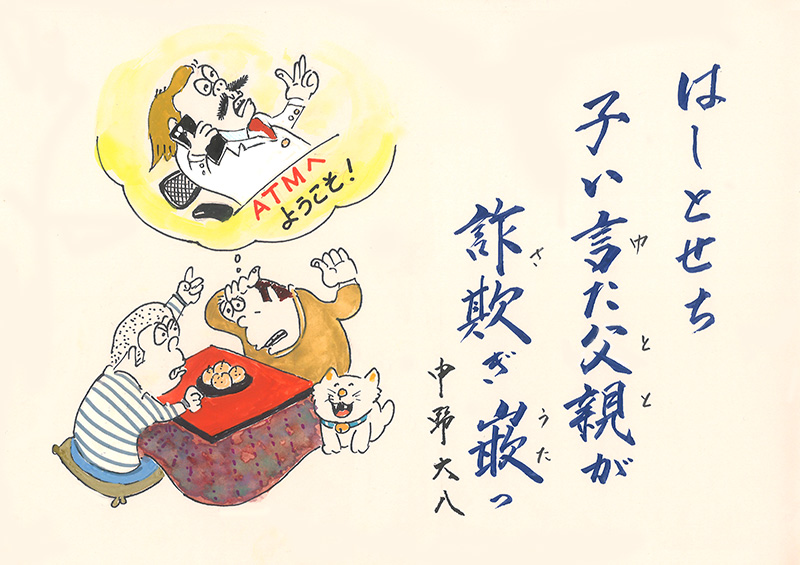 はしとせち
子い言た父親が
ゆ
とと
詐欺ぎ嵌っ
さ
うた
中野大八
ATMへ
ようこそ!